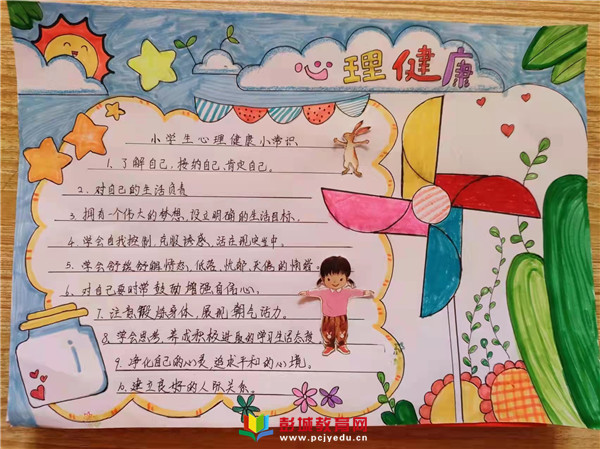 心理健康
小学生心理健康小常识
1、了解自己,接纳自己,肯定自己。
2、对自己的生活负责
3、拥有一个伟大的梦想,设立明确的生活目标。
4、学会自我控制,克服诱惑,活在现实中。
5、学会舒缓、紧张、低落、忧郁、哀伤的情绪。
6、对自己要时常鼓励增强自信心。
7、注意锻炼身体,展现朝气活力。
8、学会思考,养成积极进取的学习生活态度。
9、净化自己的心灵,追求平和的心境。
10、建立良好的人际关系。
彭城教育网
www.pcjyedu.cn